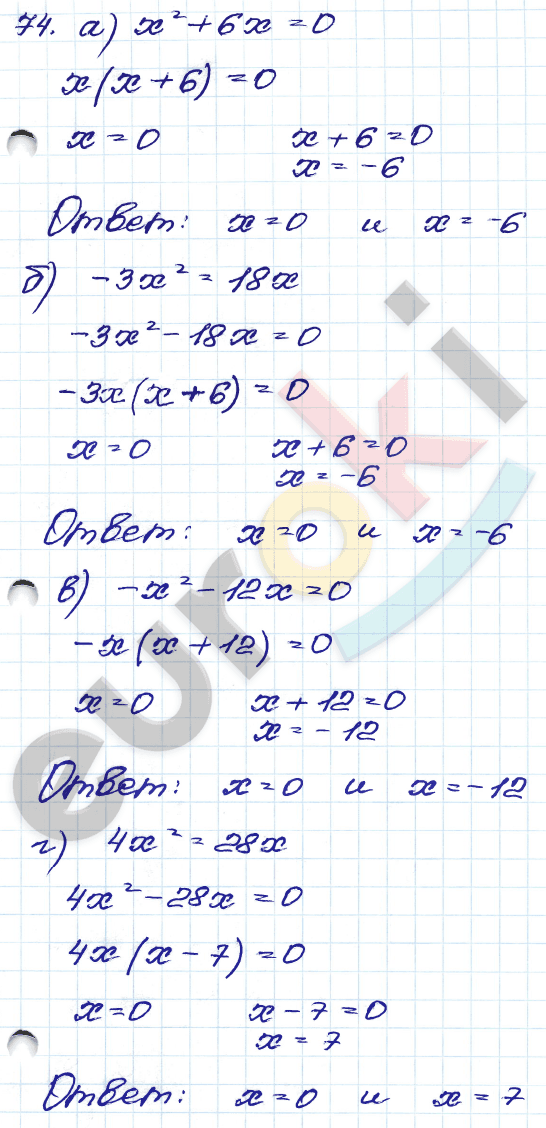 74. а) x² + 6x = 0
x(x + 6) = 0
x = 0    x + 6 = 0
x = -6
Ответ: x = 0 и x = -6
б) -3x² = 18x
-3x² - 18x = 0
-3x(x + 6) = 0
x = 0    x + 6 = 0
x = -6
Ответ: x = 0 и x = -6
в) -x² - 12x = 0
-x(x + 12) = 0
x = 0    x + 12 = 0
x = -12
Ответ: x = 0 и x = -12
г) 4x² = 28x
4x² - 28x = 0
4x(x - 7) = 0
x = 0    x - 7 = 0
x = 7
Ответ: x = 0 и x = 7
euroki